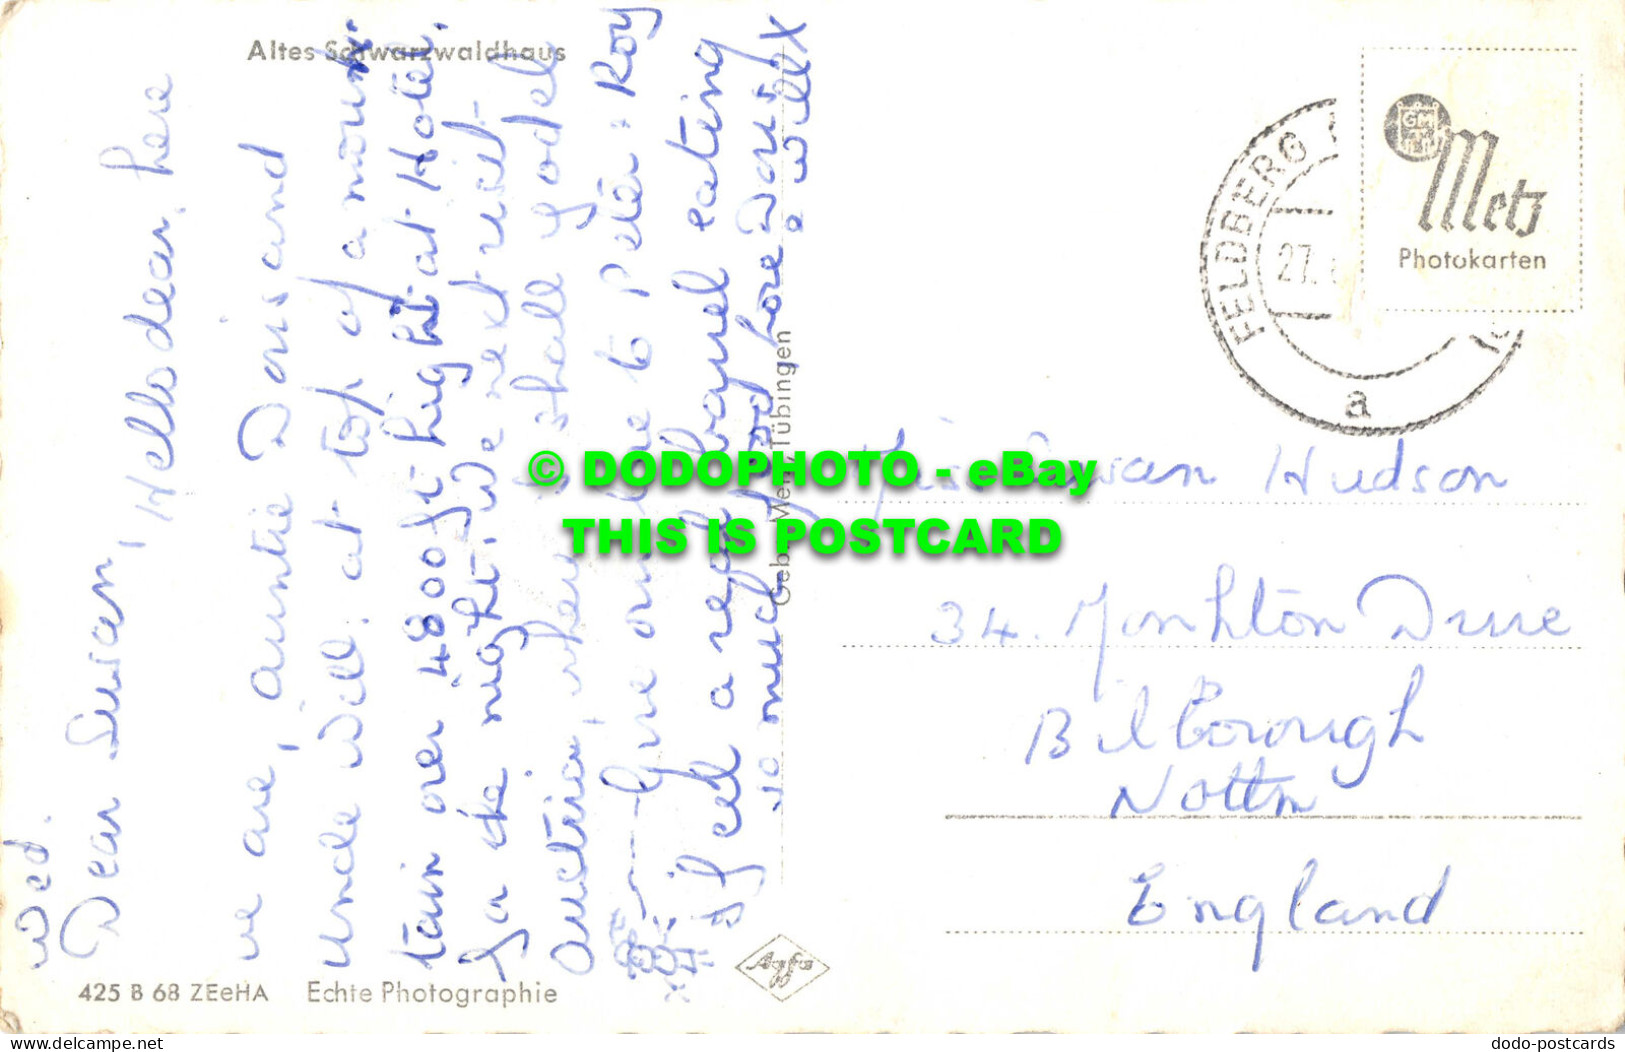 Altes Schwarzwaldhaus
Wed.
Dear Susan, Hello dear, here
we are, auntie Doris and
uncle Will. at top of a moun-
tain over 4800 ft hight at Hotel.
for the night. We next visit
Austria, where I shall yodel
Give one to Peter & Roy
if eel a real barrel eating
so much food love Doris
& Will X
Gebr. Metz, Tübingen
425 B 68 ZEeHA Echte Photographie
Agfa
FELDBERG
27.
a
GM
Metz
Photokarten
Miss Susan Hudson
34. Monkton Drive
Bilborough
Nottm
England
© DODOPHOTO - eBay
THIS IS POSTCARD
www.delcampe.net
dodo-postcards